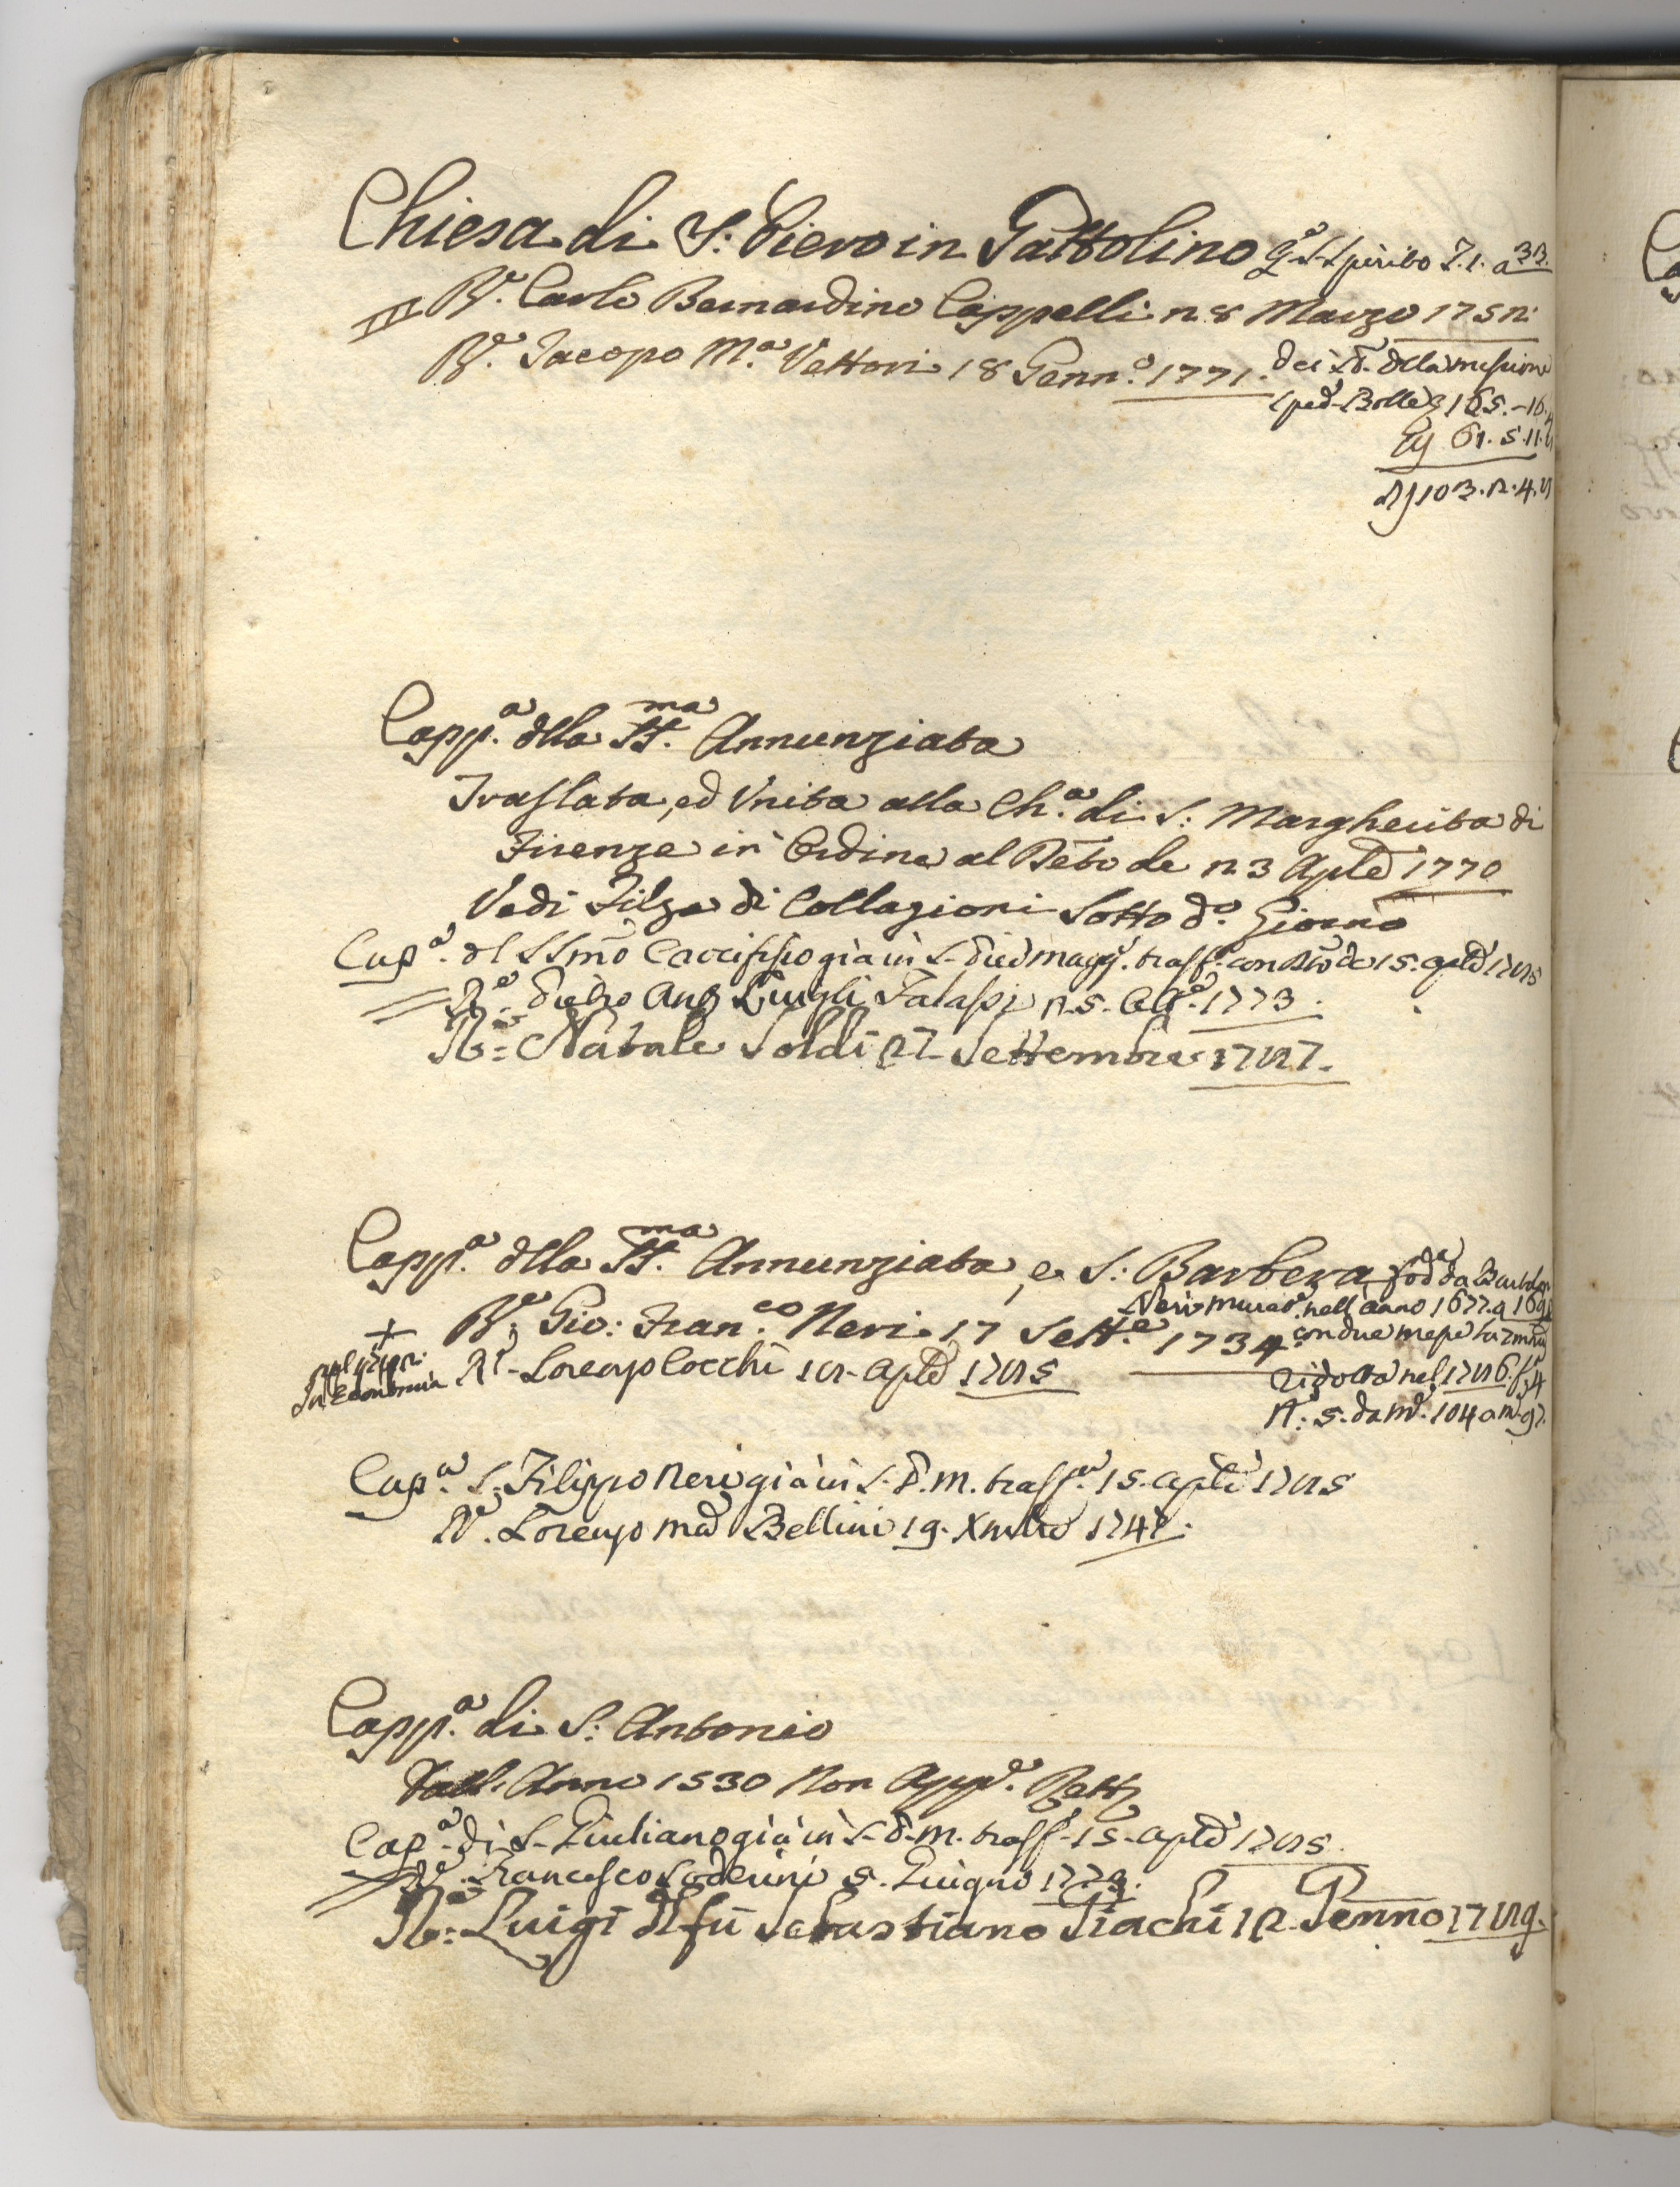 Chiesa di S: Piero in Gattolino Q.e S. Spirito T.1. a 32.
R.e Carlo Bernardino Cappelli 28 Marzo 1752:
R.e Jacopo M.a Vettori 18 Genn.o 1771. dei SS. della missione
sped. Bolle 165.-16.
61. 5. 11.
103. 2. 4.
Capp.a della SS.ma Annunziata
Traslata, ed Unita alla Ch.a di S: Margherita di
Firenze in Ordine al Dẽto de 23 Aple 1770
Vedi Filza di Collazioni Sotto d.o Giorno
Cap.a del SSmõ Crocifisso già in S. Pier magg. trasf. con Dto de 15. aple 1785
R.e Luigi 25. 1773.
R.e Natale Soldi 27 Settembre 1787.
Capp.a della SS.ma Annunziata, e S: Barbera fod.a da Bartolom.
Neri nell'anno 1677. a 169
+ R.e Gio: Fran.co Neri 17 Sett.e 1734. con due messe la
In Economia R.e Lorenzo Cocchi 18. aple 1785
ridotta nel 1786. f.a 54
N. 5. da 104 a 97.
Cap.a S. Filippo Neri già in S. P. M. trasf.a 15. aple 1785
R.e Lorenzo Bellini 19. Xmbre 1747.
Capp.a di S: Antonio
Vac. Anno 1530 Non App.e Rett
Cap.a di S. Giuliano già in S. P. M. trasf. 15. aple 1785.
R.e Francesco Soderini 5. Giugno 1773.
R.e Luigi del fù Sebastiano Fiachi 12. Genno 1789.